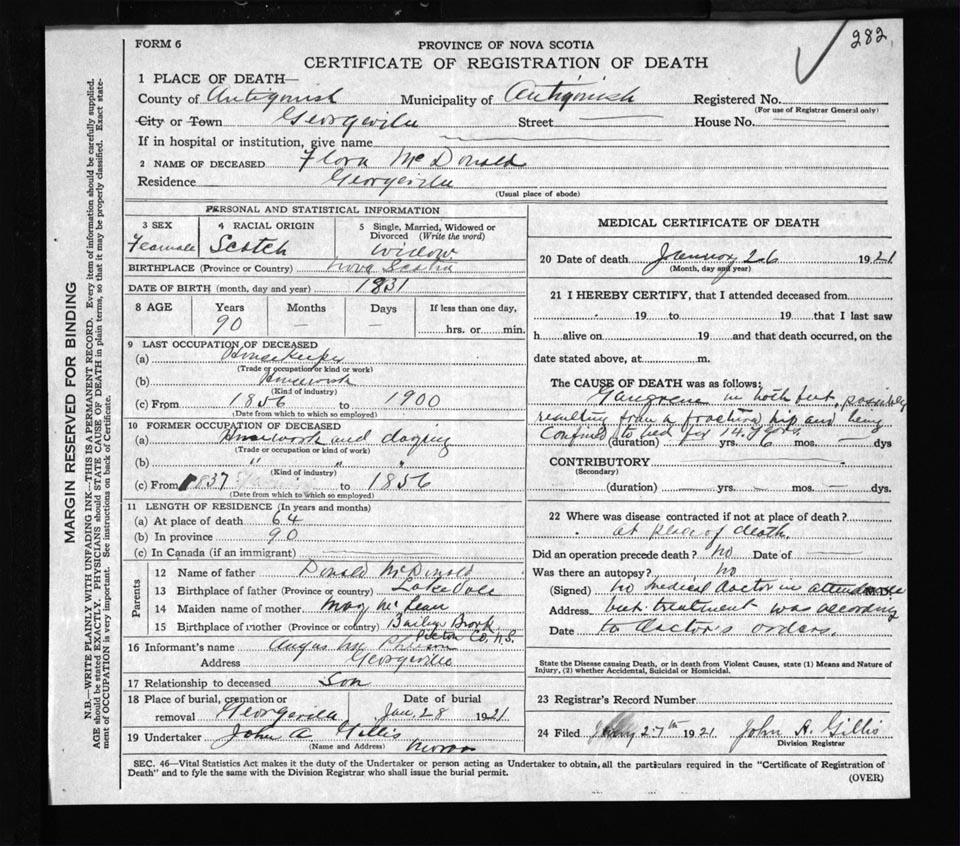 282
FORM 6
PROVINCE OF NOVA SCOTIA
CERTIFICATE OF REGISTRATION OF DEATH
1 PLACE OF DEATH—
County of Antigonish Municipality of Antigonish Registered No.
(For use of Registrar General only)
City or Town Georgeville Street House No.
If in hospital or institution, give name
2 NAME OF DECEASED Flora McDonald
Residence Georgeville
(Usual place of abode)
PERSONAL AND STATISTICAL INFORMATION
3 SEX 4 RACIAL ORIGIN 5 Single, Married, Widowed or Divorced (Write the word)
Feamale Scotch Widow
BIRTHPLACE (Province or Country) Nova Scotia
DATE OF BIRTH (month, day and year) 1831
8 AGE Years Months Days If less than one day,
90 — — hrs. or min.
9 LAST OCCUPATION OF DECEASED
(a) Housekeeper
(Trade or occupation or kind or work)
(b) Housework
(Kind of industry)
(c) From 1856 to 1900
(Date from which to which so employed)
10 FORMER OCCUPATION OF DECEASED
(a) Housework and
(Trade or occupation or kind of work)
(b) " " "
(Kind of industry)
(c) From 1837 to 1856
(Date from which to which so employed)
11 LENGTH OF RESIDENCE (In years and months)
(a) At place of death 64
(b) In province 90
(c) In Canada (if an immigrant)
Parents
12 Name of father Donald McDonald
13 Birthplace of father (Province or country) Lakevale
14 Maiden name of mother May McLean
15 Birthplace of mother (Province or country) Bailys Brook
Pictou Co, N.S.
16 Informant's name Angus
Address Georgeville
17 Relationship to deceased Son
18 Place of burial, cremation or Date of burial
removal Georgeville Jan, 28 1921
19 Undertaker John A Gillis
(Name and Address)
MEDICAL CERTIFICATE OF DEATH
20 Date of death January 26 1921
(Month, day and year)
21 I HEREBY CERTIFY, that I attended deceased from
19 to 19 that I last saw
h alive on 19 and that death occurred, on the
date stated above, at m.
The CAUSE OF DEATH was as follows:
Gangrene in both feet, possibly
resulting from a fractured hip and being
confined to bed for 14 years
(duration) yrs. 6 mos. — dys
CONTRIBUTORY
(Secondary)
(duration) yrs. mos. — dys.
22 Where was disease contracted if not at place of death?
at place of death.
Did an operation precede death? No Date of
Was there an autopsy? No
(Signed) No medical doctor in attendance
Address but treatment was according
Date to doctor's orders.
State the Disease causing Death, or in death from Violent Causes, state (1) Means and Nature of
Injury, (2) whether Accidental, Suicidal or Homicidal.
23 Registrar's Record Number
24 Filed 27th 1921 John A. Gillis
Division Registrar
SEC. 46—Vital Statistics Act makes it the duty of the Undertaker or person acting as Undertaker to obtain, all the particulars required in the "Certificate of Registration of
Death" and to fyle the same with the Division Registrar who shall issue the burial permit.
(OVER)
MARGIN RESERVED FOR BINDING
N.B.—WRITE PLAINLY WITH UNFADING INK—THIS IS A PERMANENT RECORD. Every item of information should be carefully supplied.
AGE should be stated EXACTLY. PHYSICIANS should STATE CAUSE OF DEATH in plain terms, so that it may be properly classified. Exact state-
ment of OCCUPATION is very important. See instructions on back of Certificate.